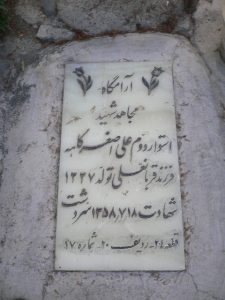 آرامگاه
مجاهد شهید
استوار دوم علی اصغر کاهه
فرزند قربانعلی تولد ۱۳۲۷
شهادت ۱۳۵۸٫۷٫۱۸ سردشت
قطعه ۲۴- ردیف ۲۰- شماره ۱۷